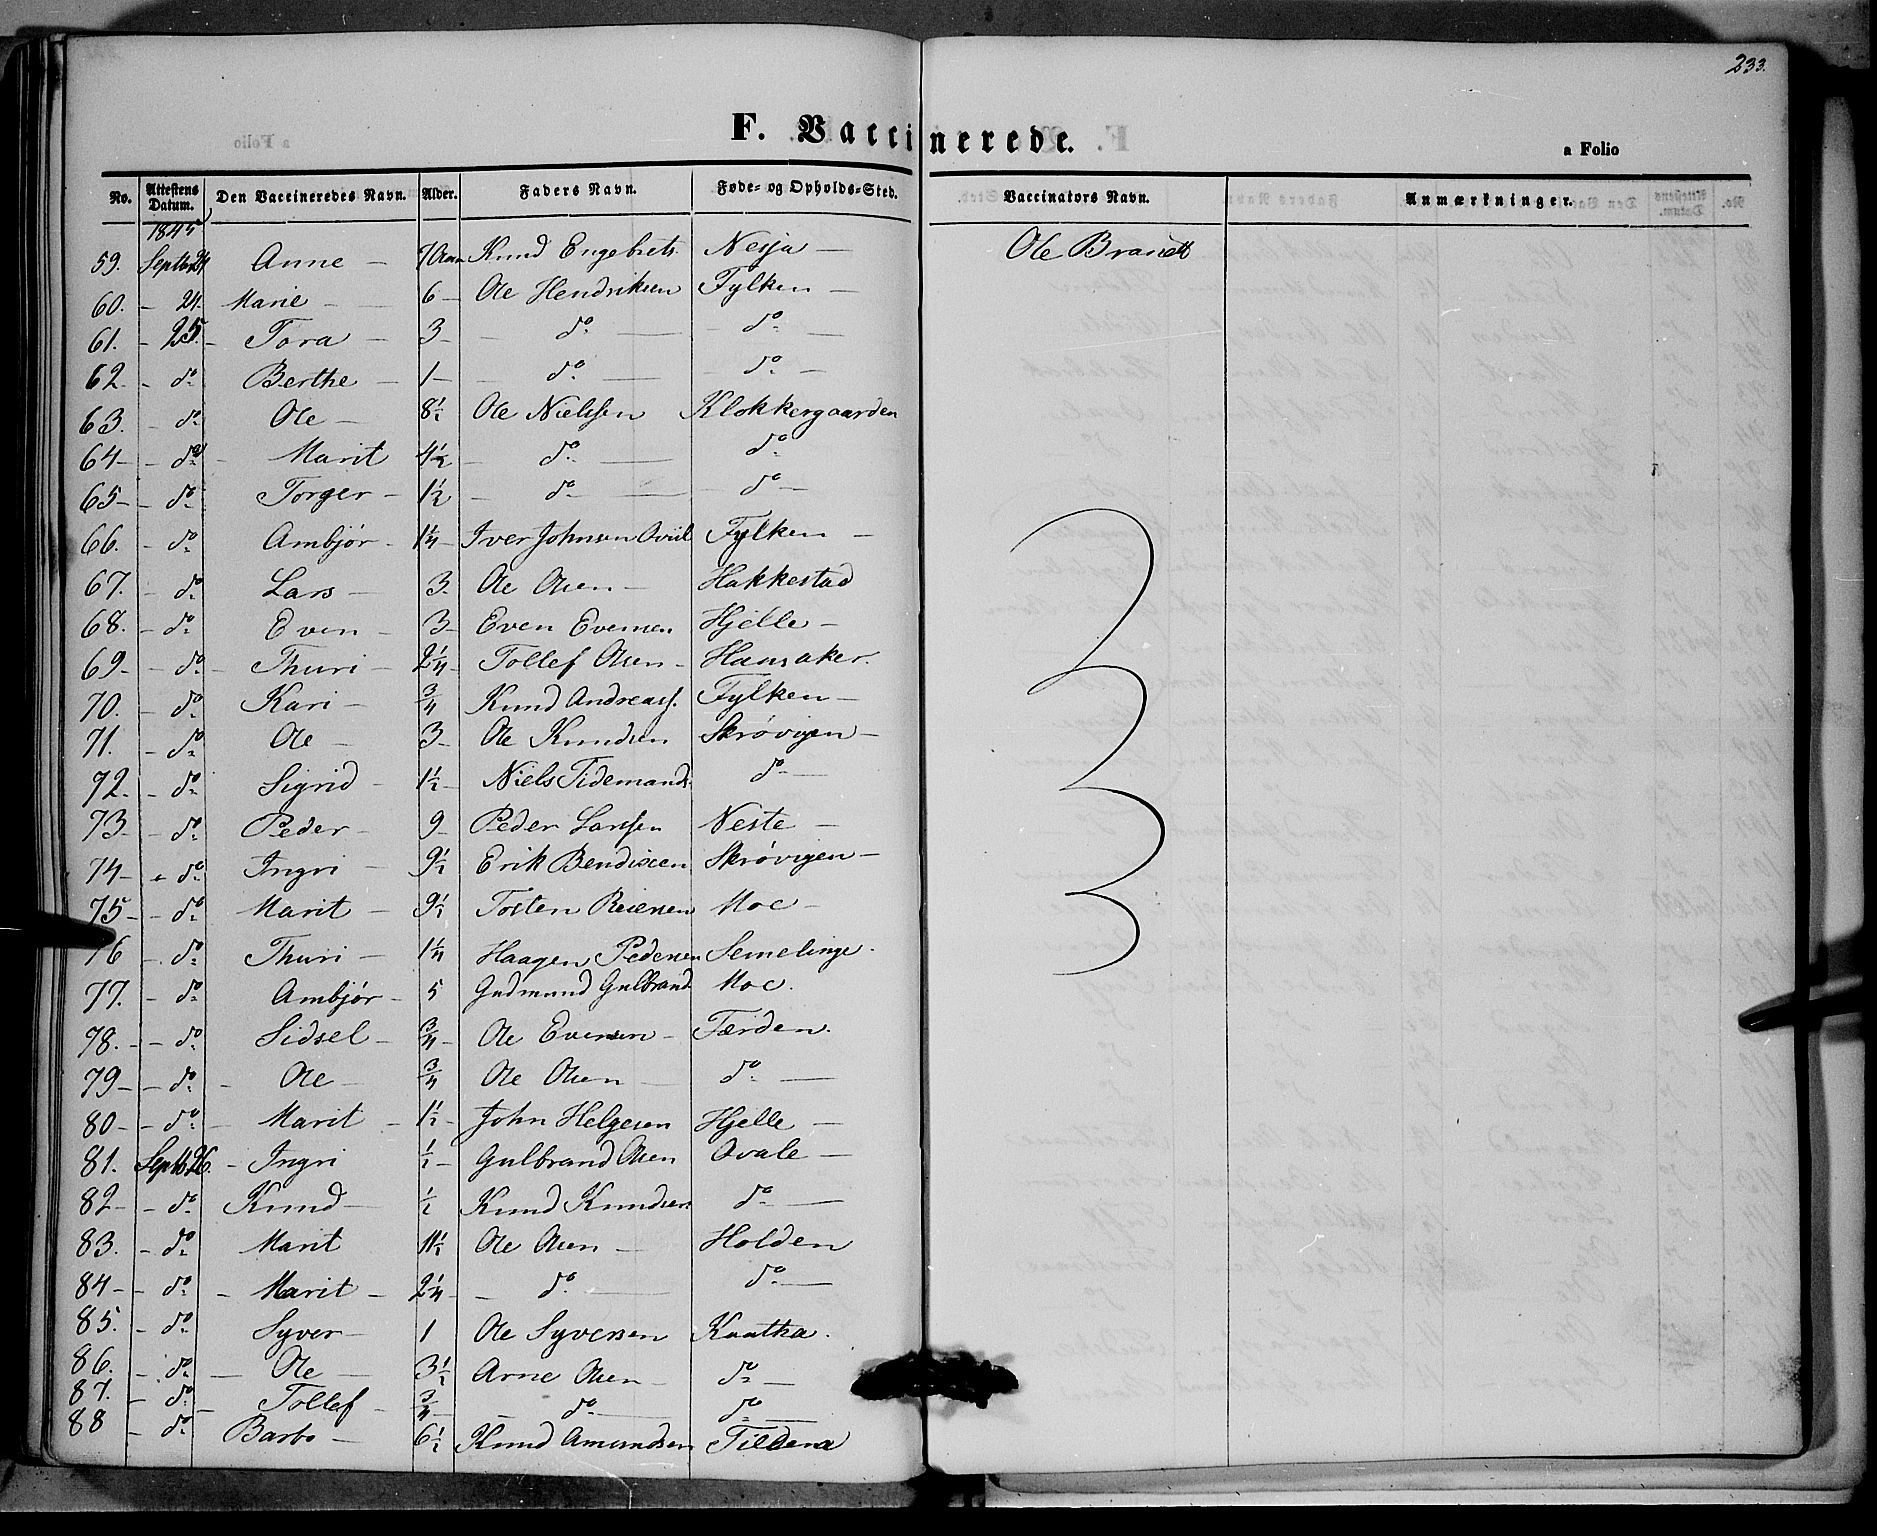 233.
F. Vaccinerede.
a Folio
No. Attestens Datum. Den Vaccineredes Navn. Alder. Faders Navn. Føde- og Opholds-Sted. Vaccinators Navn. Anmærkninger.
1845
59. Septbr 24 Anne - 7 Aar Knud Engebrets. Nesja - Ole Brandt
60. - 24. Marie - 6 - Ole Hendriksen Fylken -
61. - 25. - Tora - 3 - do - do -
62 - do Berthe - 1 - do - do -
63. - do Ole - 8½ Ole Nielssen Klokkergaarden
64 - - do - Marit 4½ - do - do
65 - - do - Torger - 1½ - do - do -
66. - do Ambjør - 1¼ - Iver Johnsen Fylken -
67. - do Lars - 3. Ole Olsen - Hakkestad
68. - do Even - 3 - Even Evensen Hjelle -
69 - - do - Thuri - 2¼ - Tollef Olsen - Hansaker.
70. - do Kari - ¾ Knud Andreass. Fylken -
71. - do Ole - 3 - Ole Knudsen Skrøvigen -
72. - do Sigrid - 1½ - Niels Tidemands. do -
73 - - do Peder - 9 - Peder Larssen Neste -
74 - - do Ingri - 9½ Erik Bendixen Skrøvigen -
75 - - do - Marit - 9½ Tosten Reiersen Moe -
76 - do - Thuri - 1¼ Haagen Pedersen Semelinge.
77. - do Ambjør - 5 Gudmund Gulbrand. Moe.
78. - do Sidsel - ¾ - Ole Evensen - Færden.
79 - - do - Ole - ¾ Ole Olsen - do -
80 - - do - Marit - 1½ - John Helgesen Hjelle -
81. Septbr 26. - Ingri ½ - Gulbrand Olsen Ovale -
82 - - do Knud - ½ Knud Knudsen do -
83. - do Marit 11½ Ole Olsen - Holden
84 - - do - Marit - 2¼ - do - do -
85. - do Syver - 1 Ole Syversen
86. - do - Ole - 3½ Arne Olsen - do -
87. - do - Tollef - ¾ - do - do -
88 - do Barbo - 6½ Knud Amundsen